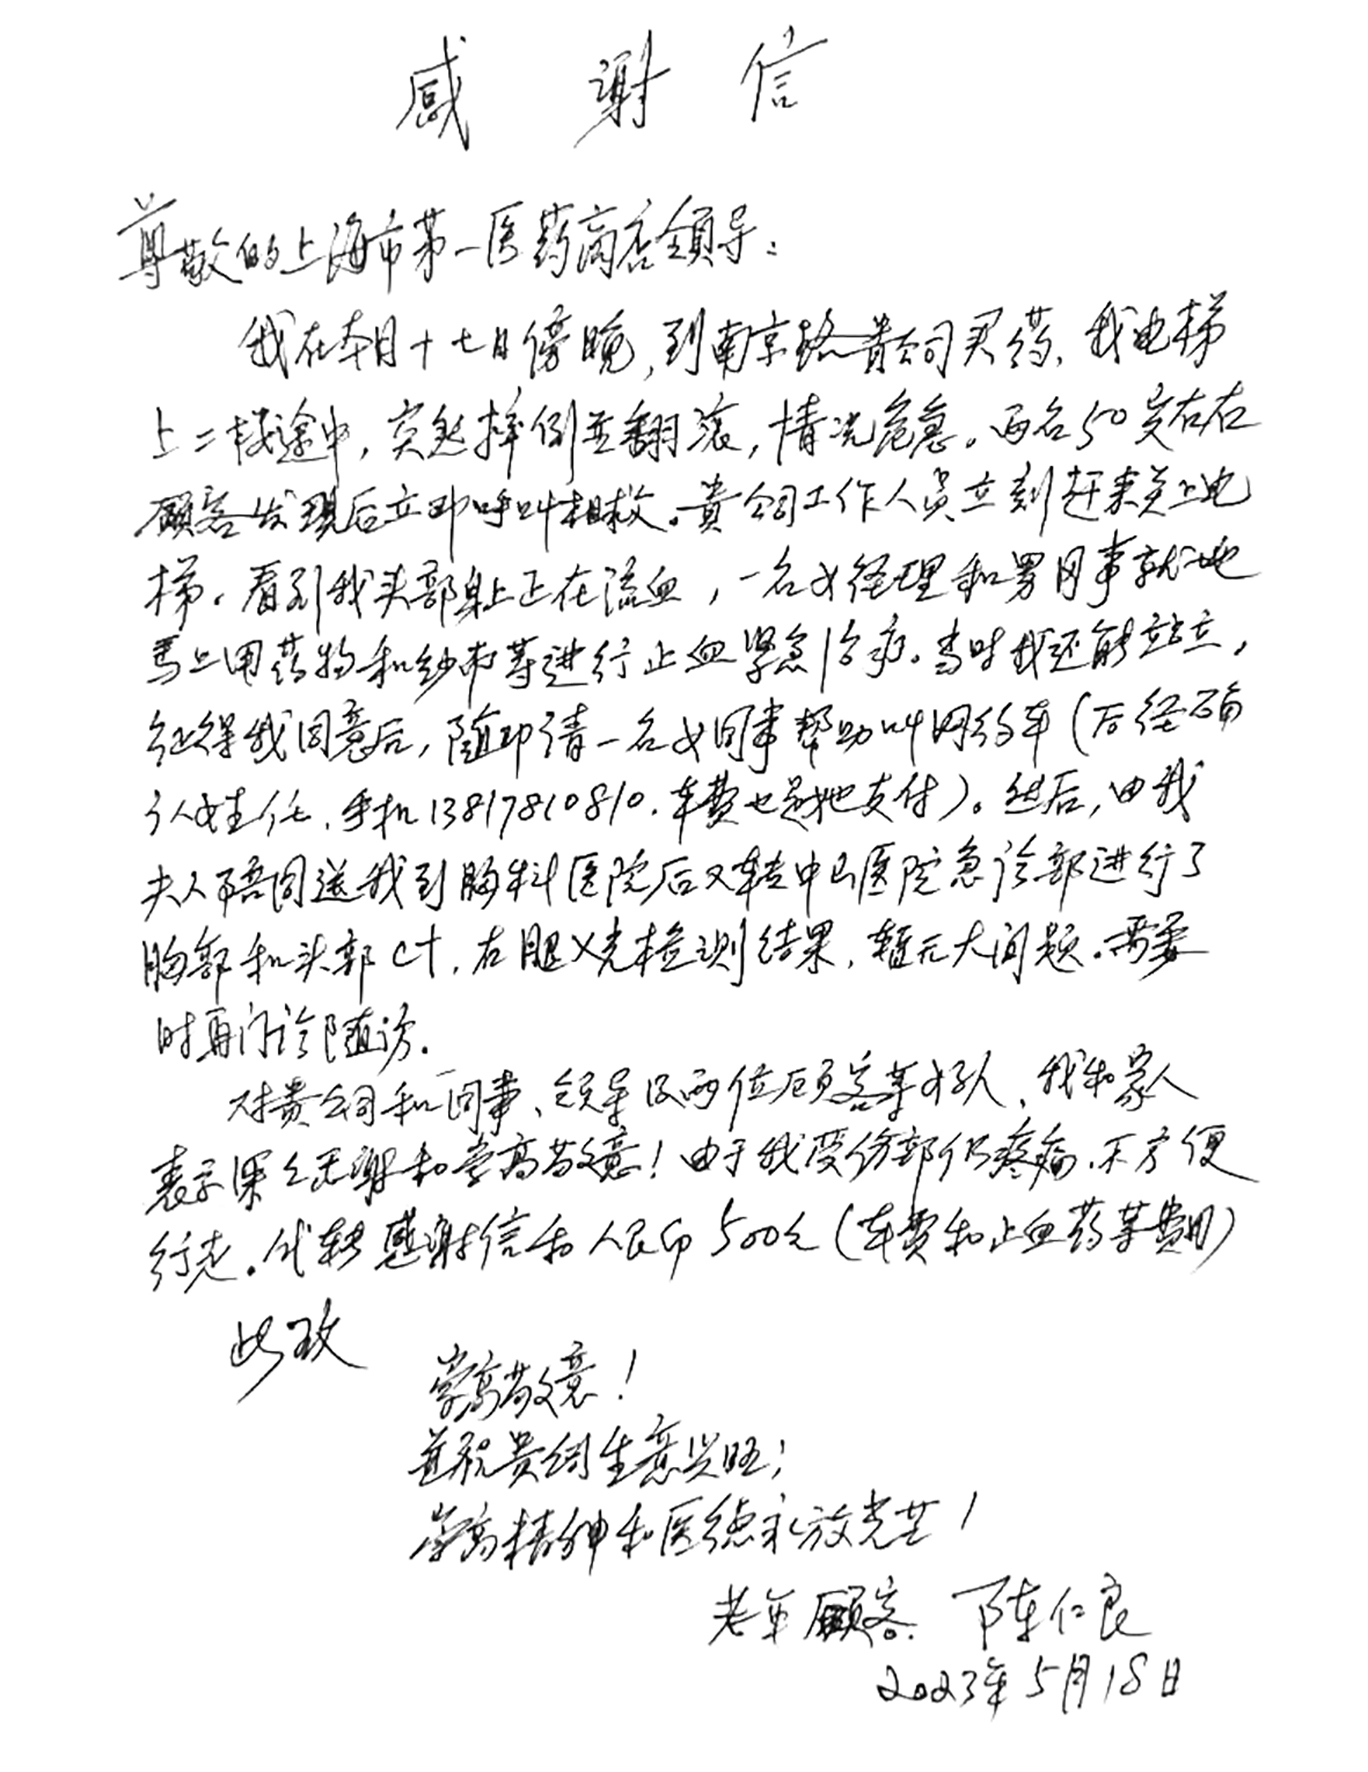 感谢信
尊敬的上海市第一医药商店领导：
我在本月十七日傍晚，到南京路贵公司买药，我电梯
上二楼途中，突然摔倒并翻滚，情况危急。两名50岁左右
顾客发现后立即呼叫相救。贵公司工作人员立刻赶来关上电
梯。看到我头部身上正在流血，一名女经理和男同事就地
马上用药物和纱布等进行止血紧急治疗。当时我还能站立，
征得我同意后，随即请一名女同事帮助叫网约车（后经确
认姓任，手机13817810810，车费也是她支付）。然后，由我
夫人陪同送我到胸科医院后又转中山医院急诊部进行了
胸部和头部CT，右腿X光检测结果，暂无大问题。需要
时再门诊随访。
对贵公司和同事、领导及两位顾客等好人，我和家人
表示深深感谢和崇高敬意！由于我受伤部仍疼痛，不方便
行走。代转感谢信和人民币500元（车费和止血药等费用）
此致
崇高敬意！
并祝贵公司生意兴旺；
崇高精神和医德永放光芒！
老年顾客：陈仁良
2023年5月18日